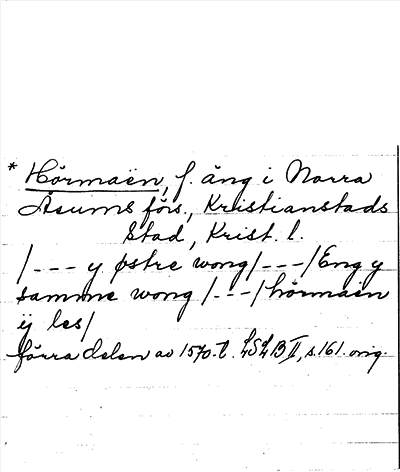 * Hörmaën, f. äng i Norra
Åsums förs., Kristianstads
Stad, Krist. l.
/--- y østre wong/---/Eng y
samme wong /---/hörmaën
ÿ les/
förra delen av 1570-t. LSLB II, s. 161. orig.